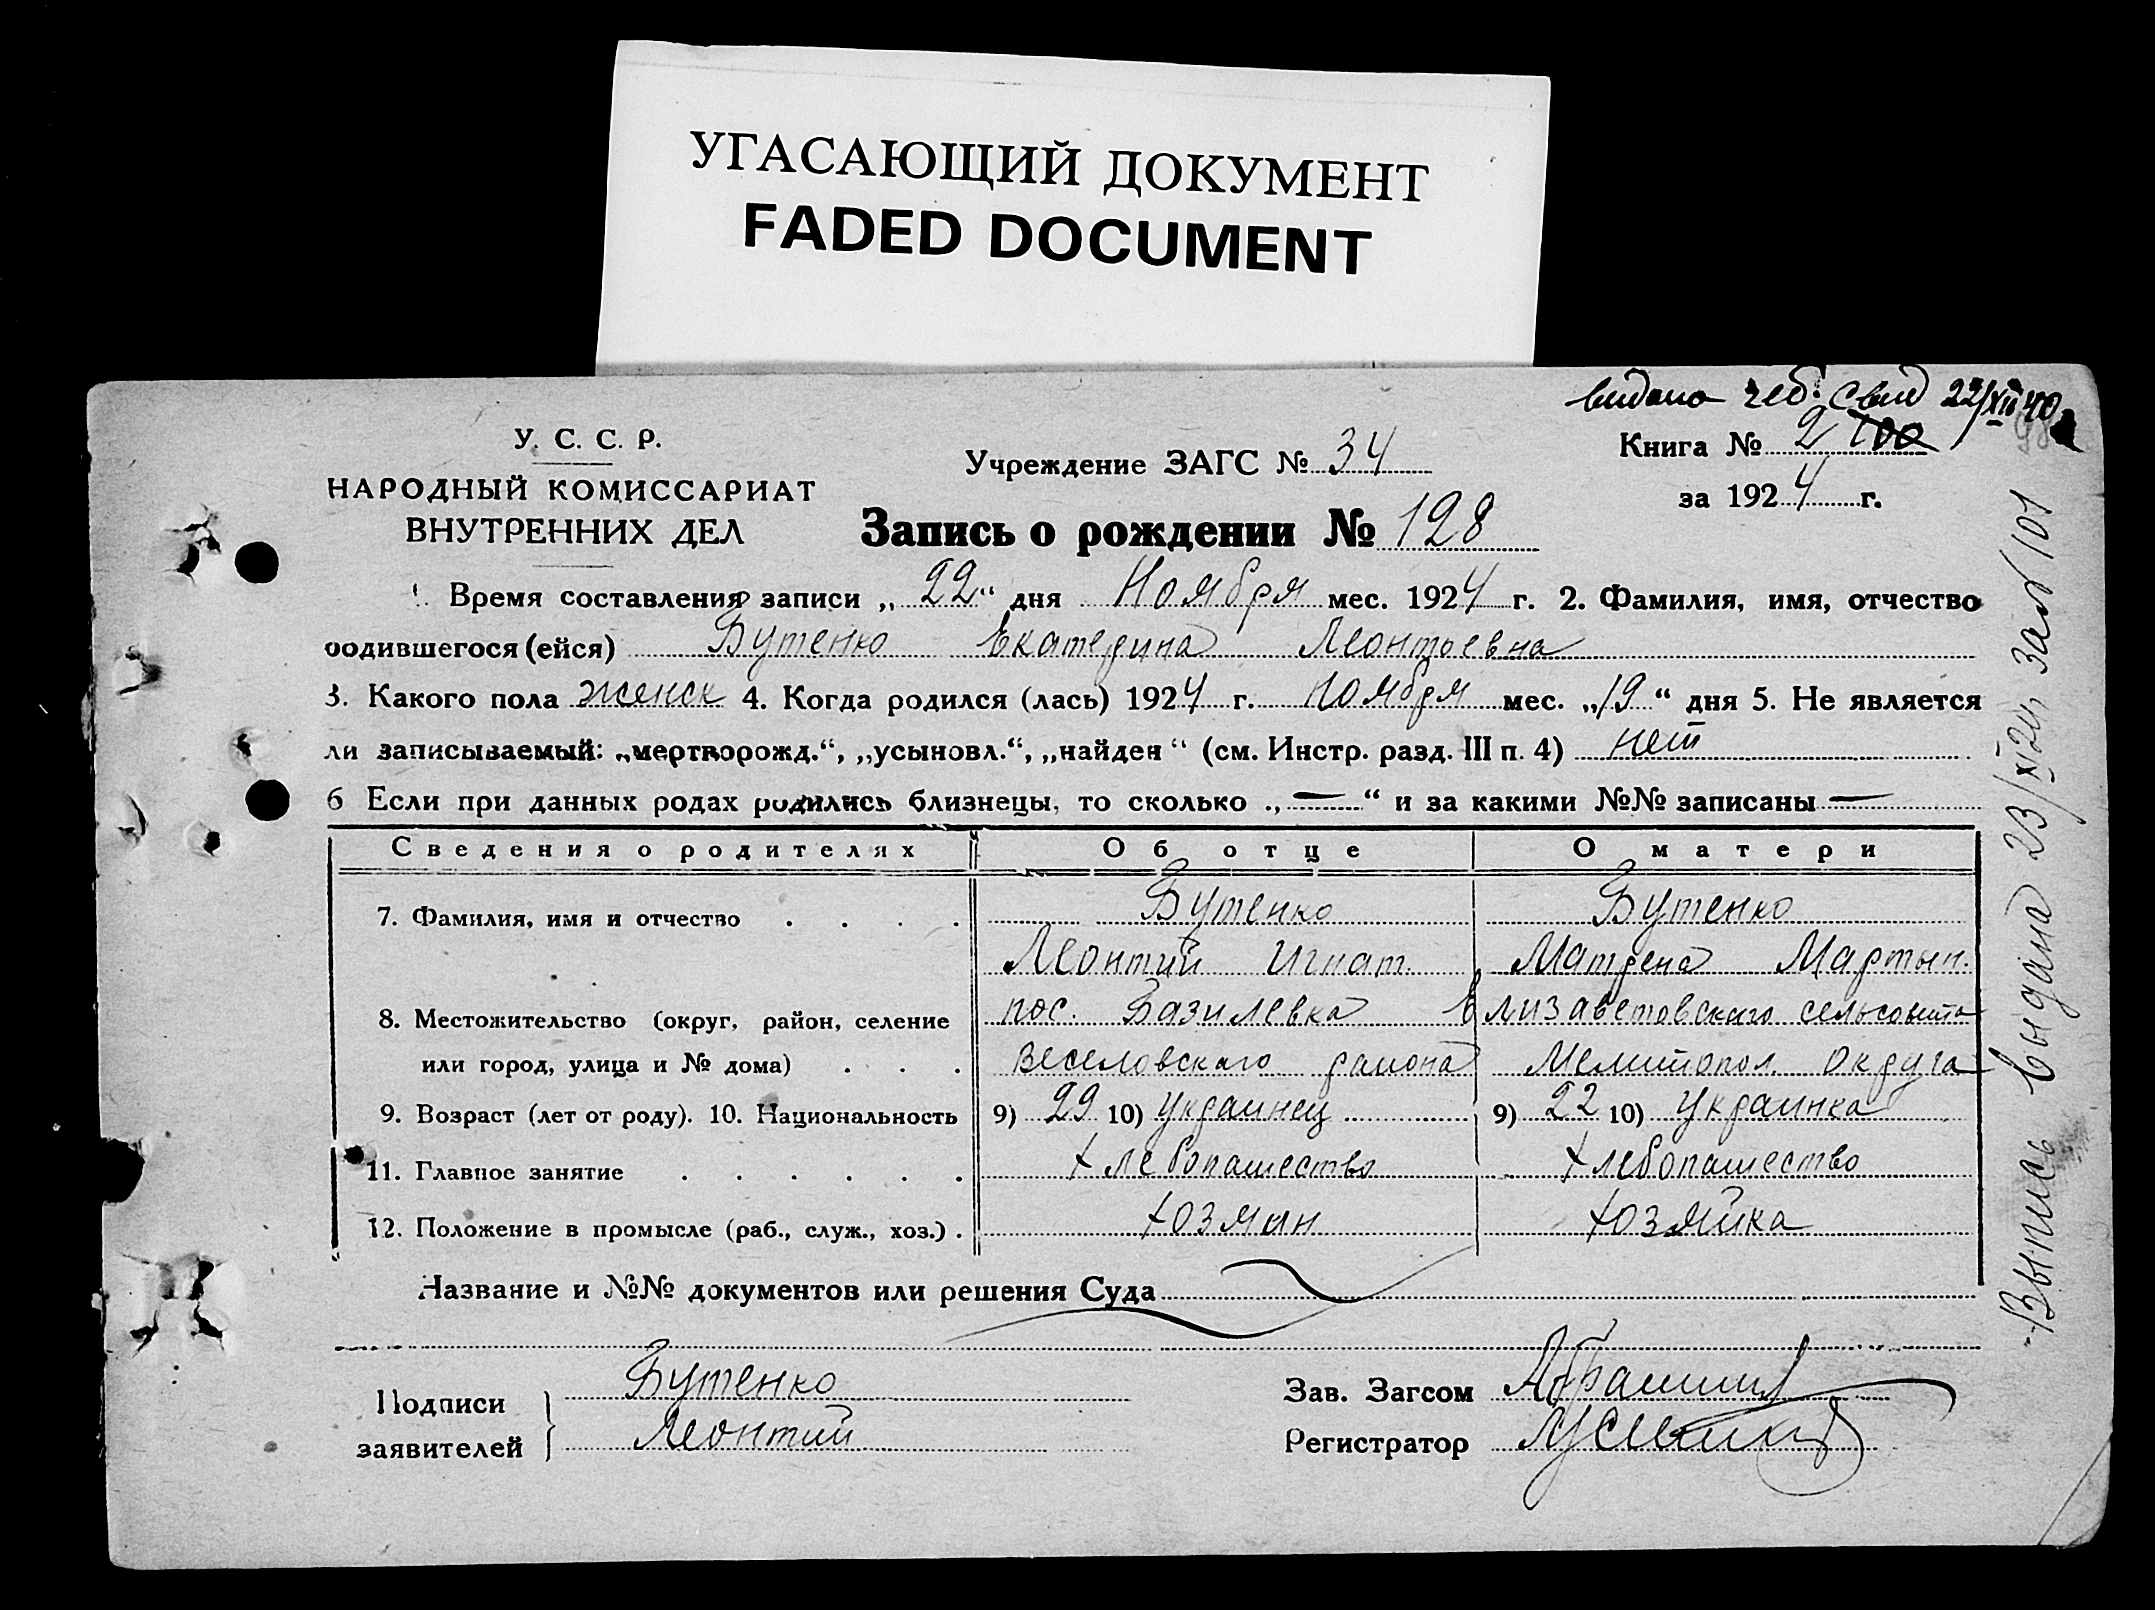 УГАСАЮЩИЙ ДОКУМЕНТ
FADED DOCUMENT
видано свид 22/XII 40
У. С. С. Р.
НАРОДНЫЙ КОМИССАРИАТ
ВНУТРЕННИХ ДЕЛ
Учреждение ЗАГС № 34
Книга № 2 100
за 1924 г.
Запись о рождении № 128
1. Время составления записи „22“ дня Ноября мес. 1924 г. 2. Фамилия, имя, отчество
родившегося (ейся) Бутенко Екатерина Леонтьевна
3. Какого пола женск 4. Когда родился (лась) 1924 г. Ноября мес. „19“ дня 5. Не является
ли записываемый: „мертворожд.“, „усыновл.“, „найден“ (см. Инстр. разд. III п. 4) нет
6 Если при данных родах родились близнецы, то сколько „—“ и за какими №№ записаны —
Сведения о родителях Об отце О матери
7. Фамилия, имя и отчество . . . . Бутенко Бутенко
Леонтий Игнат. Матрена Мартын.
8. Местожительство (округ, район, селение пос. Базилевка Елизаветовскаго сельсовета
или город, улица и № дома) . . . Веселовскаго района Мелитопол. округа
9. Возраст (лет от роду). 10. Национальность 9) 29 10) Украинец 9) 22 10) Украинка
11. Главное занятие . . . . . . Хлебопашество Хлебопашество
12. Положение в промысле (раб., служ., хоз.) . Хозяин Хозяйка
Название и №№ документов или решения Суда
Подписи
заявителей
Бутенко
Леонтий
Зав. Загсом
Регистратор
Выпись выдана 23/XI 24 г. за № 101